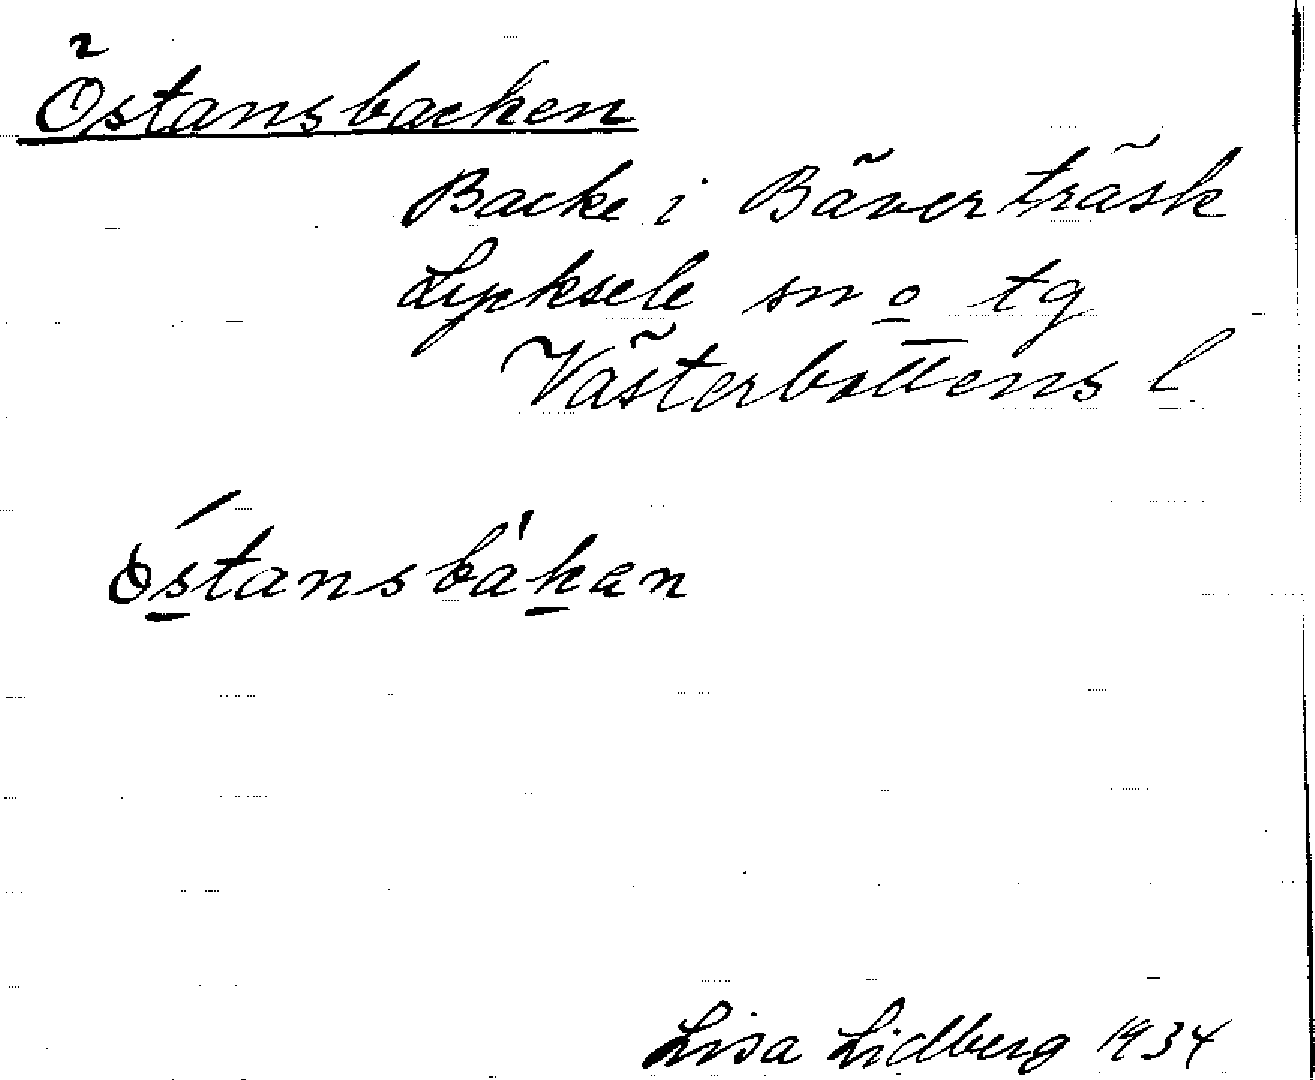 Östansbacken
Backe i Bäverträsk
Lycksele sn o tg
Västerbottens l.
östansbakan
Lisa Lidberg 1934